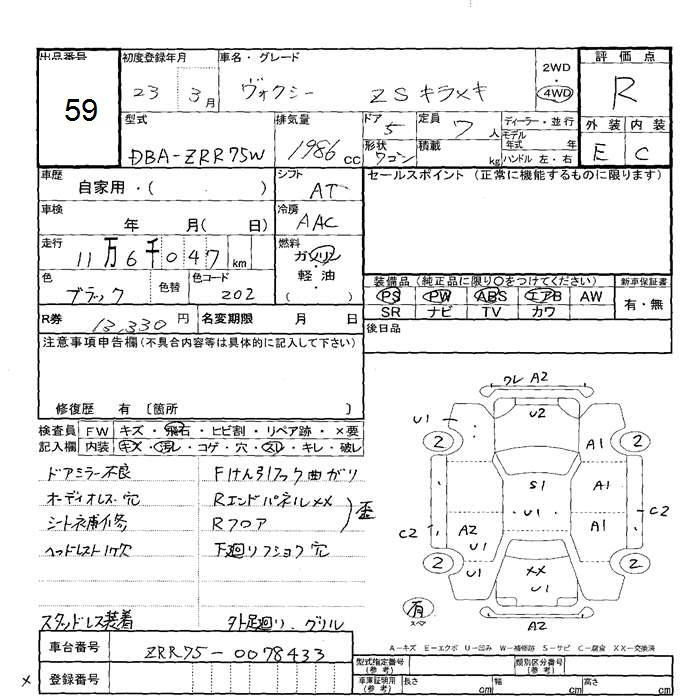 出品番号
59
初度登録年月
23 3月
車名・グレード
ヴォクシー ZSキラメキ
2WD
・
4WD
評価点
R
外装 内装
E C
型式
DBA-ZRR75W
排気量
1986cc
ドア
5
形状
ワゴン
定員
7人
積載
kg
ディーラー・並行
モデル
年式 年
ハンドル 左・右
車歴
自家用・( )
シフト
AT
車検
年 月( 日)
冷房
AAC
走行
11万6千047km
燃料
ガソリン
・
軽・油
( )
色
ブラック
色替
色コード
202
R券 13,330円
名変期限 月 日
セールスポイント(正常に機能するものに限ります)
装備品(純正品に限り○をつけてください)
PS PW ABS エアB AW
SR ナビ TV カワ
新車保証書
有・無
後日品
注意事項申告欄(不具合内容等は具体的に記入して下さい)
修復歴 有 〔箇所 〕
検査員 FW キズ・飛石・ヒビ割・リペア跡・×要
記入欄 内装 キズ・汚レ・コゲ・穴・スレ・キレ・破レ
ドアミラー不良
オーディオレス.穴
シートネ補修
ヘッドレスト1ケ欠
スタッドレス装着
Fけん引フック曲がり
RエンドパネルXX
Rフロア
歪
下廻りフショク穴
外足廻り、グリル
ワレ A2
U1
U2
2
2
A1
S1
A1
U1
A1
C2
C2
A2
U1
2
2
U1
XX
U1
U1
有
スペア
A2
A－キズ E－エクボ U－凹み W－補修跡 S－サビ C－腐食 XX－交換済
車台番号 ZRR75-0078433
× 登録番号
型式指定番号
(参考)
類別区分番号
(参考)
車庫証明用
(参考)
長さ cm 幅 cm 高さ cm